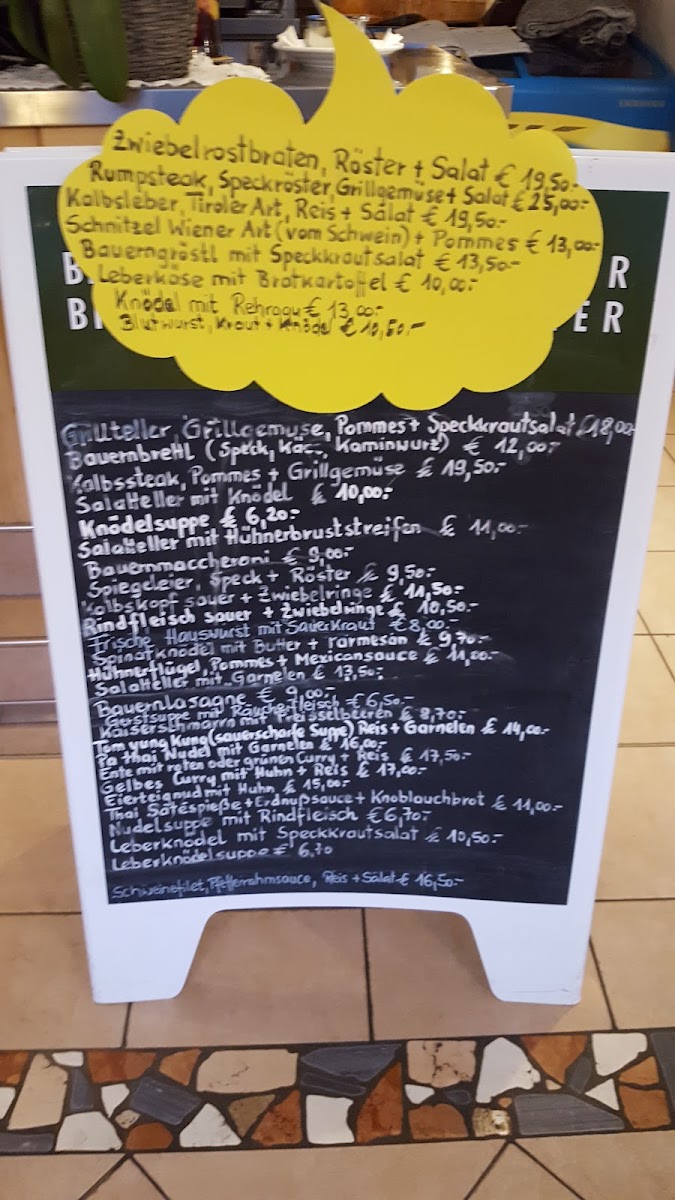 Zwiebelrostbraten, Röster + Salat € 19,50.-
Rumpsteak, Speckröster, Grillgemüse + Salat € 25,00.-
Kalbsleber, Tiroler Art, Reis + Salat € 19,50.-
Schnitzel Wiener Art (vom Schwein) + Pommes € 13,00.-
Bauerngröstl mit Speckkrautsalat € 13,50.-
Leberkäse mit Bratkartoffel € 10,00.-
Knödel mit Rehragu € 13,00.-
Blutwurst, Kraut + Knödel € 10,50.-
Grillteller, Grillgemüse, Pommes + Speckkrautsalat € 18,00.-
Bauernbrettl (Speck, Käs., Kaminwurz) € 12,00.-
Kalbssteak, Pommes + Grillgemüse € 19,50.-
Salatteller mit Knödel € 10,00.-
Knödelsuppe € 6,20.-
Salatteller mit Hühnerbruststreifen € 11,00.-
Bauernmaccheroni € 9,00.-
Spiegeleier, Speck + Röster € 9,50.-
Kalbskopf sauer + Zwiebelringe € 11,50.-
Rindfleisch sauer + Zwiebelringe € 10,50.-
Frische Hauswurst mit Sauerkraut € 8,00.-
Spinatknödel mit Butter + Parmesan € 9,70.-
Hühnerflügel, Pommes + Mexicansauce € 11,00.-
Salatteller mit Garnelen € 13,50.-
Bauernlasagne € 9,00.-
Gerstsuppe mit Räucherfleisch € 6,50.-
Kaiserschmarrn mit Preisselbeeren € 8,70.-
Tom yung Kung (sauerscharfe Suppe) Reis + Garnelen € 14,00.-
Pa thai Nudel mit Garnelen € 16,00.-
Ente mit roten oder grünen Curry + Reis € 17,50.-
Gelbes Curry mit Huhn + Reis € 17,00.-
Eierteignud mit Huhn € 15,00.-
Thai Satéspieße + Erdnußsauce + Knoblauchbrot € 11,00.-
Nudelsuppe mit Rindfleisch € 6,70.-
Leberknödel mit Speckkrautsalat € 10,50.-
Leberknödelsuppe € 6,70
Schweinefilet, Pfefferrahmsauce, Reis + Salat € 16,50.-